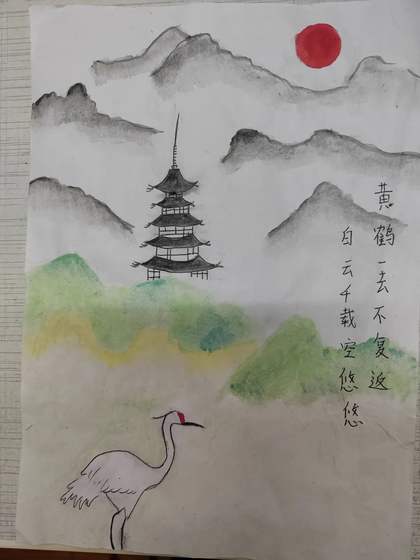 黄鹤一去不复返
白云千载空悠悠